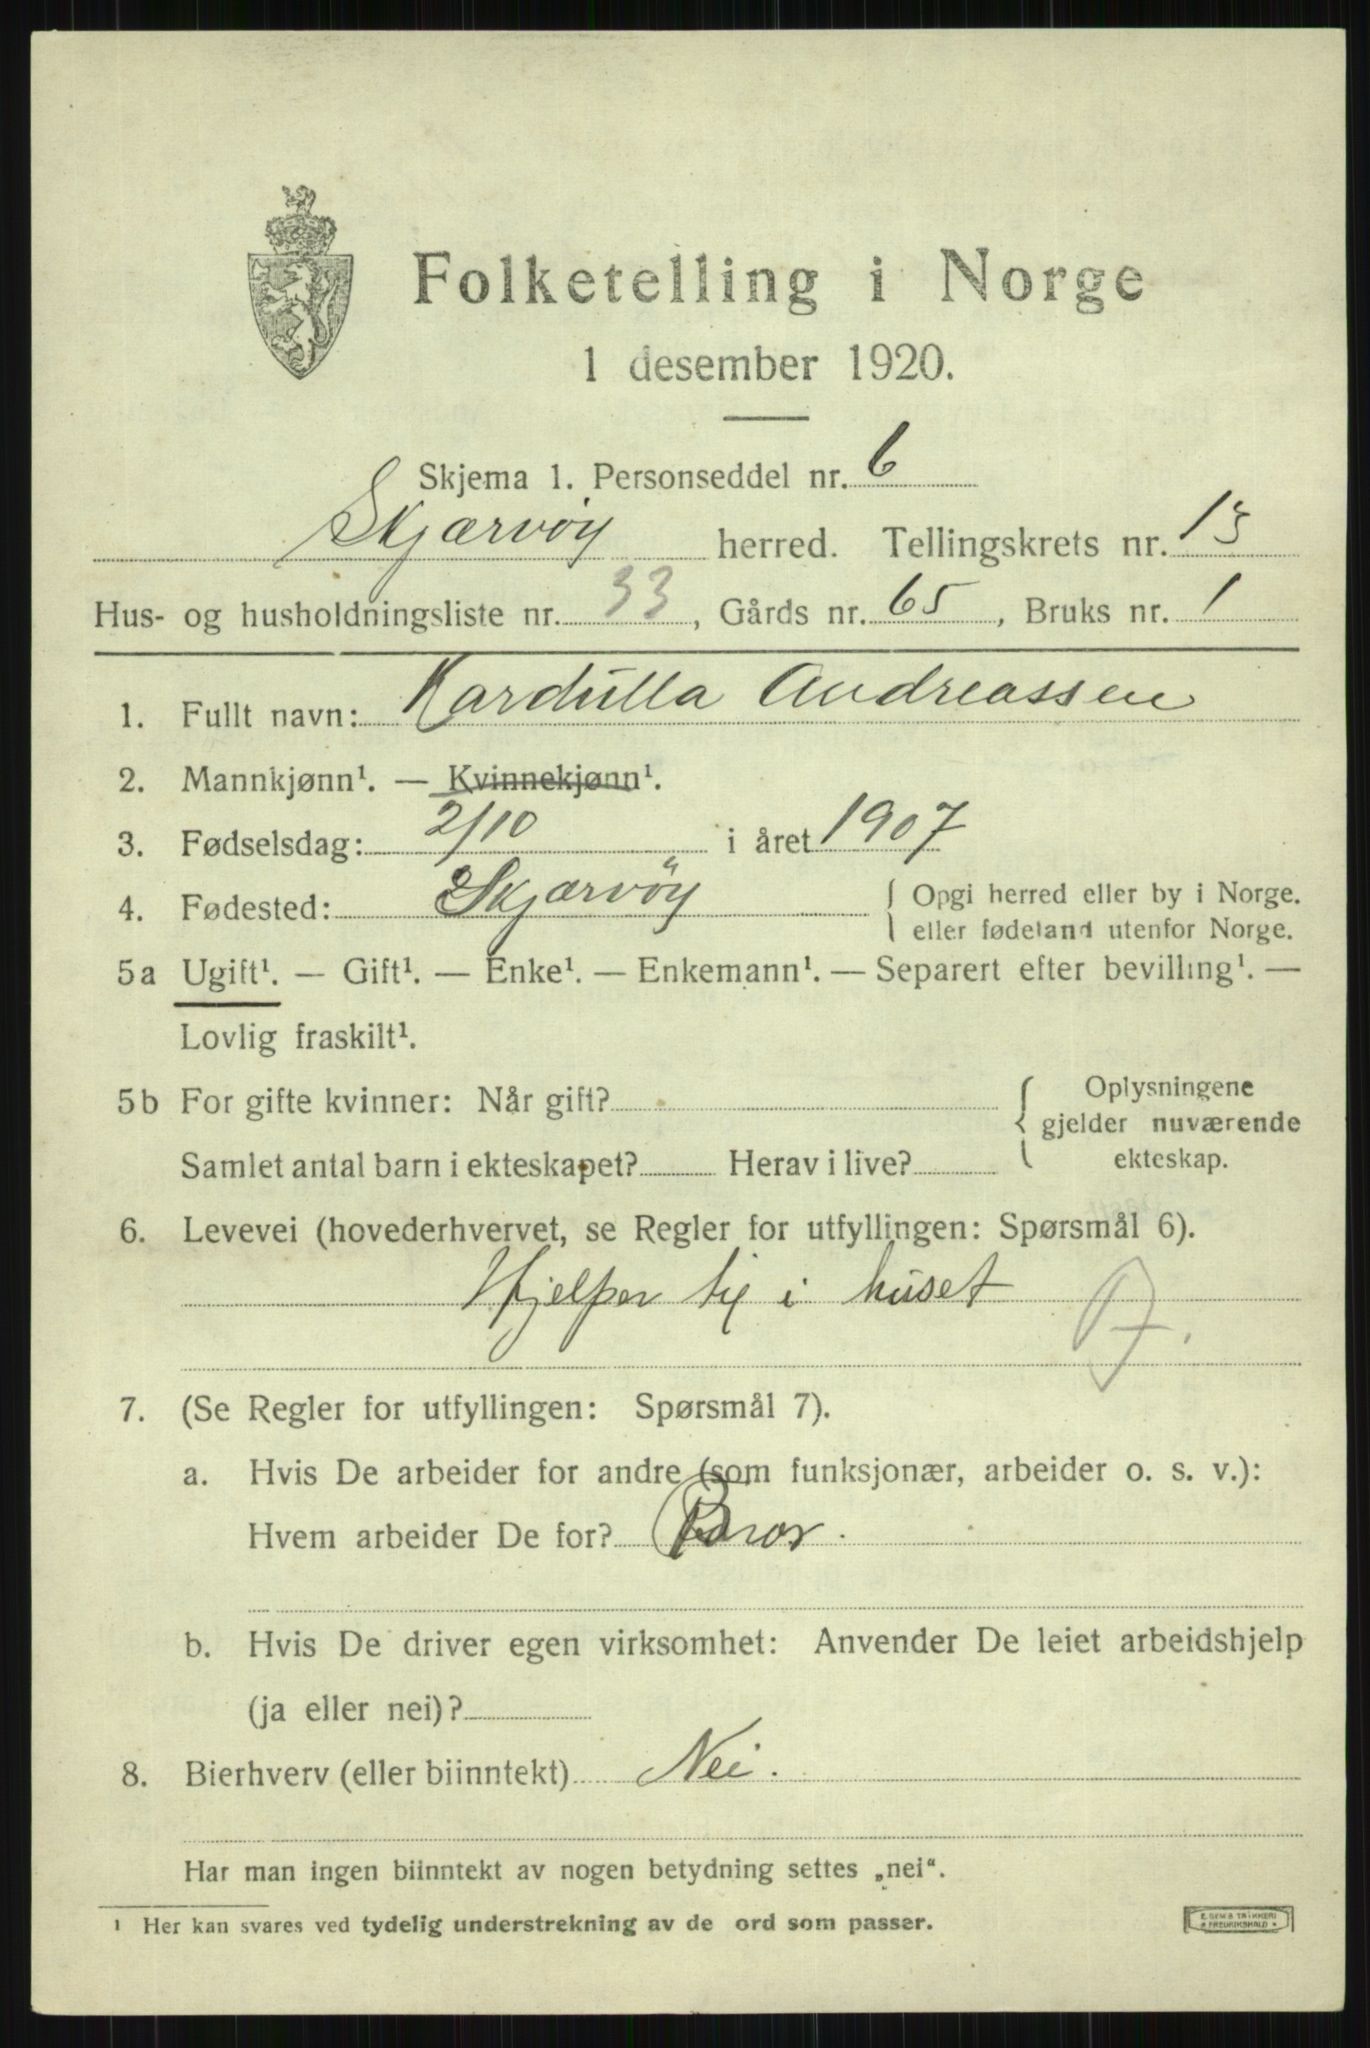 Folketelling i Norge
1 desember 1920.
Skjema 1. Personseddel nr. 6
Skjærvöy herred. Tellingskrets nr. 13
Hus- og husholdningsliste nr. 33, Gårds nr. 65, Bruks nr. 1
1. Fullt navn: Kardulla Andreassen
2. Mannkjønn¹. — Kvinnekjønn¹.
3. Fødselsdag: 2/10 i året 1907
4. Fødested: Skjærvöy { Opgi herred eller by i Norge.
eller fødeland utenfor Norge.
5a Ugift¹. — Gift¹. — Enke¹. — Enkemann¹. — Separert efter bevilling¹. —
Lovlig fraskilt¹.
5b For gifte kvinner: Når gift? { Oplysningene
gjelder nuværende
Samlet antal barn i ekteskapet? Herav i live? ekteskap.
6. Levevei (hovederhvervet, se Regler for utfyllingen: Spørsmål 6).
Hjelper til i huset
7. (Se Regler for utfyllingen: Spørsmål 7).
a. Hvis De arbeider for andre (som funksjonær, arbeider o. s. v.):
Hvem arbeider De for? Bror.
b. Hvis De driver egen virksomhet: Anvender De leiet arbeidshjelp
(ja eller nei)?
8. Bierhverv (eller biinntekt) Nei.
Har man ingen biinntekt av nogen betydning settes „nei“.
¹ Her kan svares ved tydelig understrekning av de ord som passer.